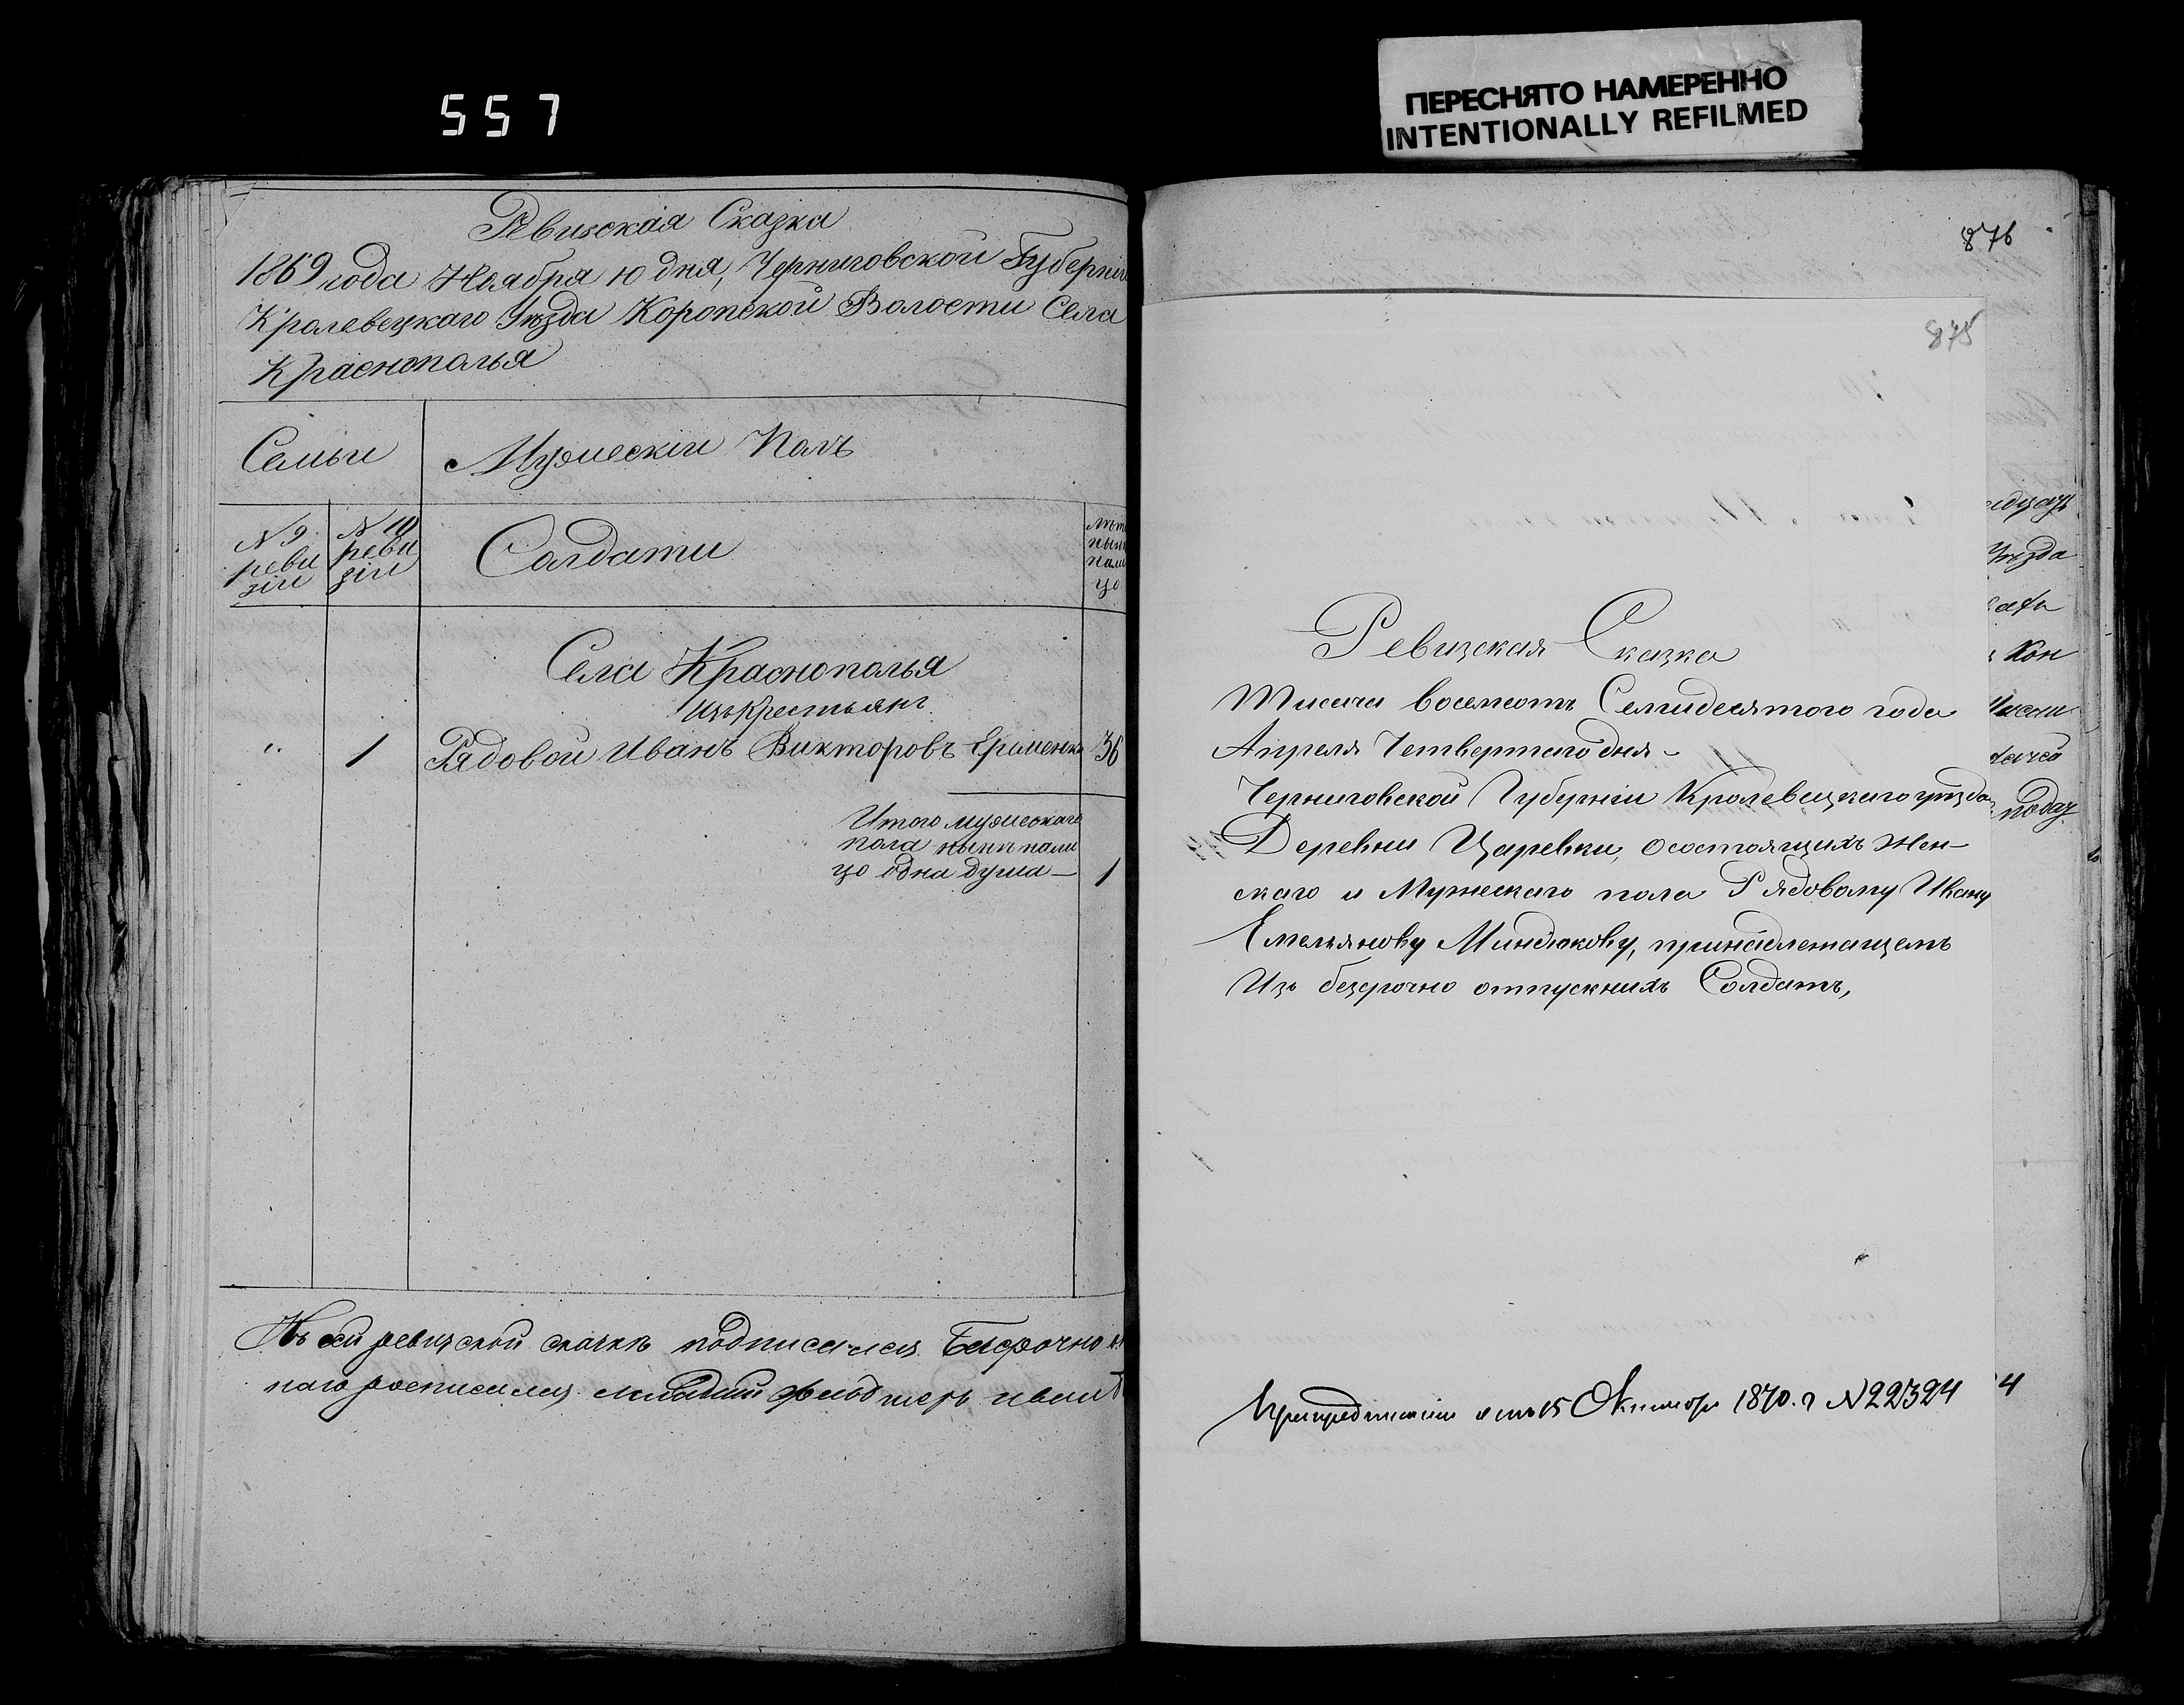 557
ПЕРЕСНЯТО НАМЕРЕННО
INTENTIONALLY REFILMED
Ревизская Сказка
1869 года Ноября 10 дня, Черниговской Губерніи
Кролевецкаго Уѣзда Коропской Волости Села
Краснополья
Семьи
Мужескіи Полъ
N 9
реви
зіи
N 10
реви
зіи
Солдати
лѣт
нын
нали
цо
Села Краснополья
изъ крестьянъ
" 1 Рядовой Иванъ Викторовъ Ерименко 36
Итого мужескаго
пола нынѣ нали
цо одна душа — 1
Къ сей ревизской сказкѣ подписался Бесрочно
росписался младший фельдшеръ
876
875
Ревизская Сказка
Тисяча восемсотъ Семидесятого года
Апреля Четвертого дня –
Черниговской Губерніи Кролевецкаго уѣзда
Деревни Царевки, осостоящихъ Жен-
скаго и Мужескаго пола Рядовому Ивану
Емельянову Миндюкову, принадлежащемъ
Изъ безсрочно отпускнихъ Солдатъ,
уѣзда
Кон
подаз
При предписаніи отъ 15 Октября 1870. г N 22324
4